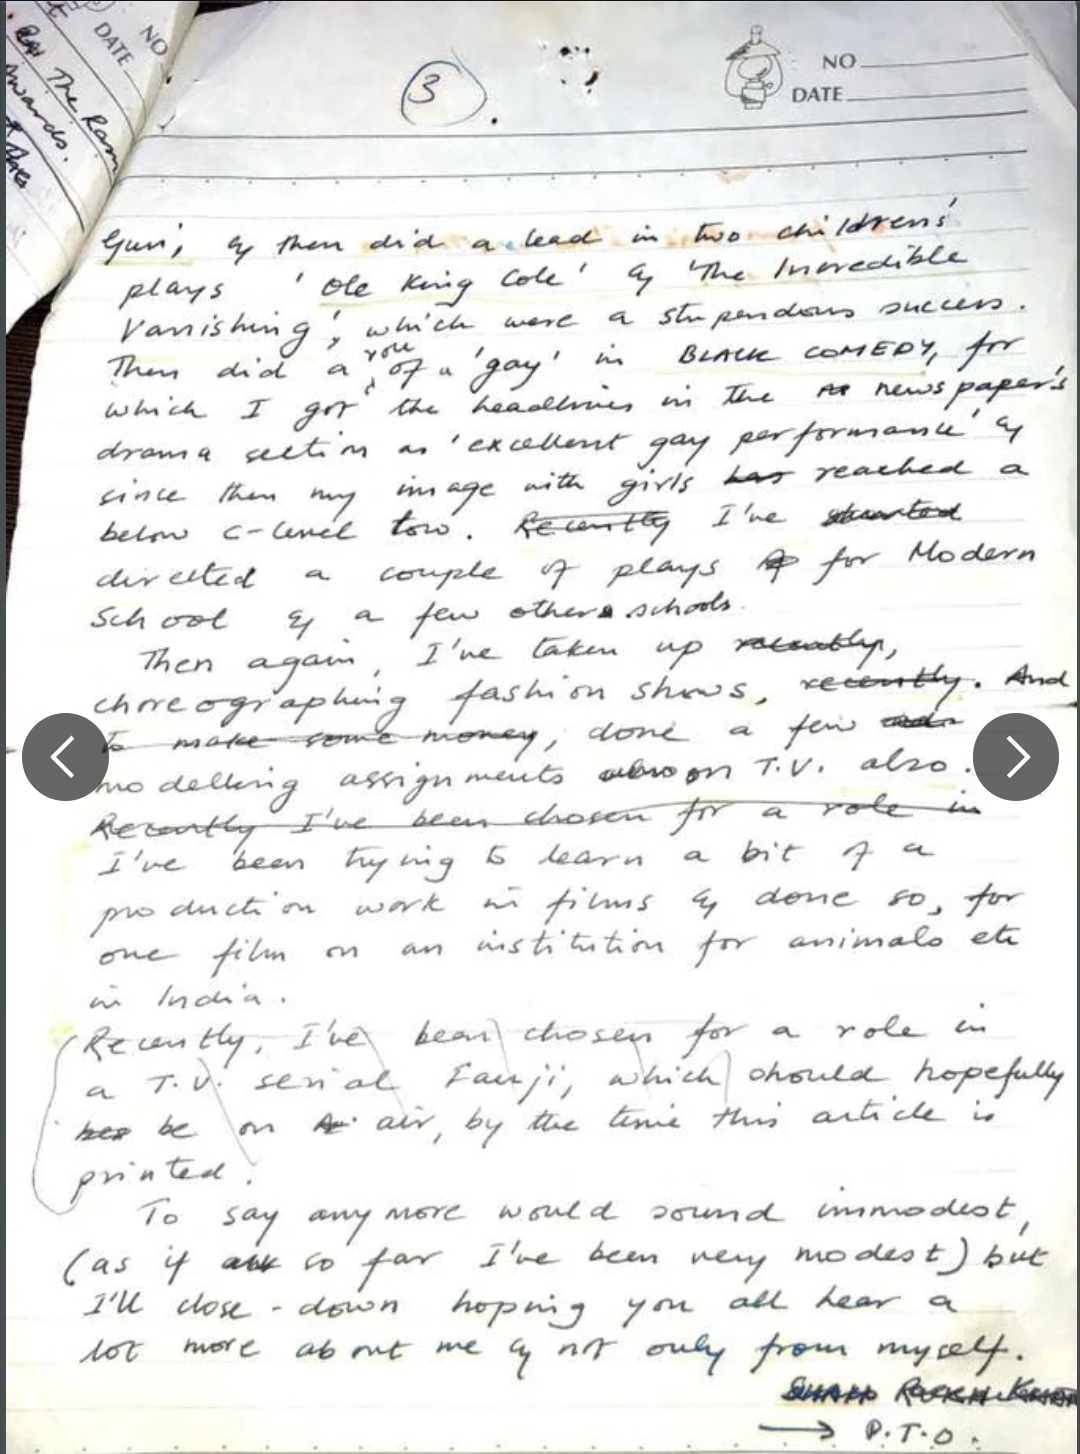 NO
DATE
Awards.
The Ram
NO
DATE
3
Gun', & then did a lead in two childrens'
plays 'Ole King Cole' & 'The Incredible
Vanishing', which were a stupendous success.
Then did a role of a 'gay' in BLACK COMEDY, for
which I got the headlines in the newspaper's
drama section as 'excellent gay performance' &
since then my image with girls has reached a
below C-level low. Recently I've started
directed a couple of plays for Modern
School & a few others schools.
Then again, I've taken up recently,
choreographing fashion shows, recently. And
to make some money, done a few ads
modelling assignments on T.V. also.
Recently I've been chosen for a role in
I've been trying to learn a bit of a
production work in films & done so, for
one film on an institution for animals etc
in India.
(Recently, I've been chosen for a role in
a T.V. serial Fauji, which should hopefully
be on air, by the time this article is
printed.
To say anymore would sound immodest,
(as if so far I've been very modest) but
I'll close-down hoping you all hear a
lot more about me & not only from myself.
SHAH RUKH KHAN
→ P.T.O.